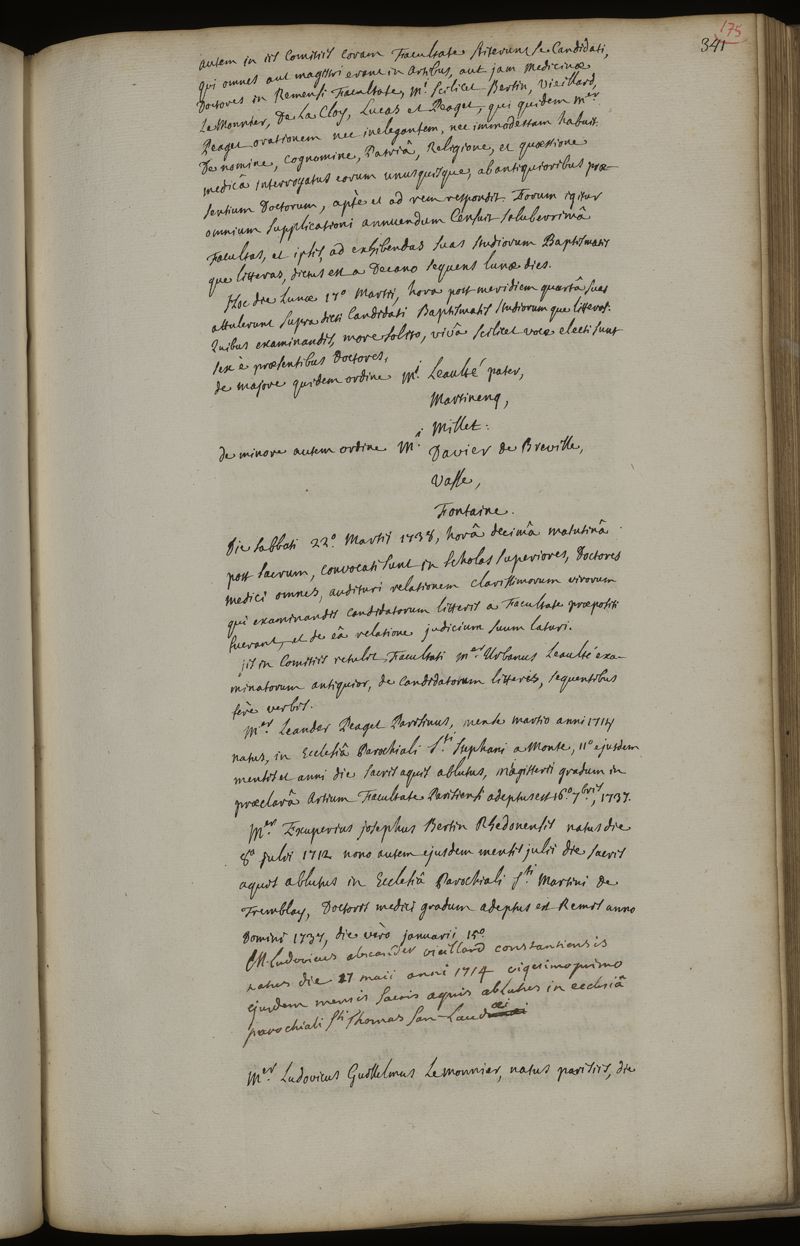 175
341
autem in iis Comitiis Coram Facultate stiterunt se Candidati,
qui omnes aut magistri erant in Artibus, aut jam Medicinæ
Doctores in Remensi Facultate, Mi. scilicet Bertin, Vieillard,
Le Monnier, De La Cloy, Lucas et Peaget, qui quidem Mer.
Peaget orationem nec inelegantem, nec immodestam habuit.
De nomine, cognomine, Patriâ, Religione, et quæstione
medicâ interrogatus eorum unusquisque, ab antiquioribus præ-
sentium Doctorum, aptè et ad rem respondit. Eorum igitur
omnium supplicationi annuendum Censuit saluberrima
Facultas, et ipsis, ad exhibendas suas studiorum Baptismatis
que litteras, dictus est a Decano sequens lunæ dies.
Hoc die Lunæ 17º Martii, hora post meridiem quartâ suas
attulerunt supra dicti Candidati Baptismatis studiorum que litteras.
Quibus examinandis, more solito, vivâ scilicet voce electi sunt
sex è præsentibus Doctores,
de majore quidem ordine Mi. Leaulté pater,
Martinenq,
Millet.
de minore autem ordine Mi. Davier de Breville,
Vasse,
Fontaine.
Die sabbati 22º. Martii 1738, horâ decimâ matutinâ
post sacrum, convocati sunt in scholas superiores, Doctores
medici omnes, audituri relationem clarissimorum virorum
qui examinandis candidatorum litteris a Facultate præpositi
fuerant, et de eâ relatione judicium suum laturi.
jis in Comitiis retulit Facultati Mer. Urbanus Leaulté exa-
minatorum antiquior, de candidatorum litteris, sequentibus
ferè verbis.
Mer. Leander Peaget Parisinus, mense martio anni 1714
natus, in Ecclesiâ Parochiali Sti. Stephani a Monte, 11º ejusdem
mensis et anni die sacris aquis ablutus, Magisterii gradum in
præclarâ Artium Facultate Parisiensi adeptus est 16º. 7bris, 1737.
Mer. Exuperius josephus Bertin Rhedonensis natus die
8â julii 1712 nono autem ejusdem mensis julii die sacris
aquis ablutus in Ecclesiâ Parochiali Sti Martini de
Tremblay, Doctoris medici gradum adeptus est Remis anno
Domini 1737, die vero januarii 15º.
M. Ludovicus alexander vieillard constantiensis
natus die 21 maii anni 1714 vigesimo primo
ejusdem mensis sacris aquis ablutus in ecclesiâ
parochiali Sti Thomas San-Laudæi
Mer. Ludovicus Guillelmus Le monnier, natus parisiis, die